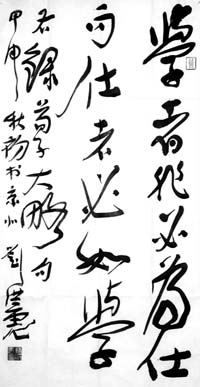 學者非必為仕
而仕者必如學
右錄荀子大略句
甲申秋於京北
劉洪彪